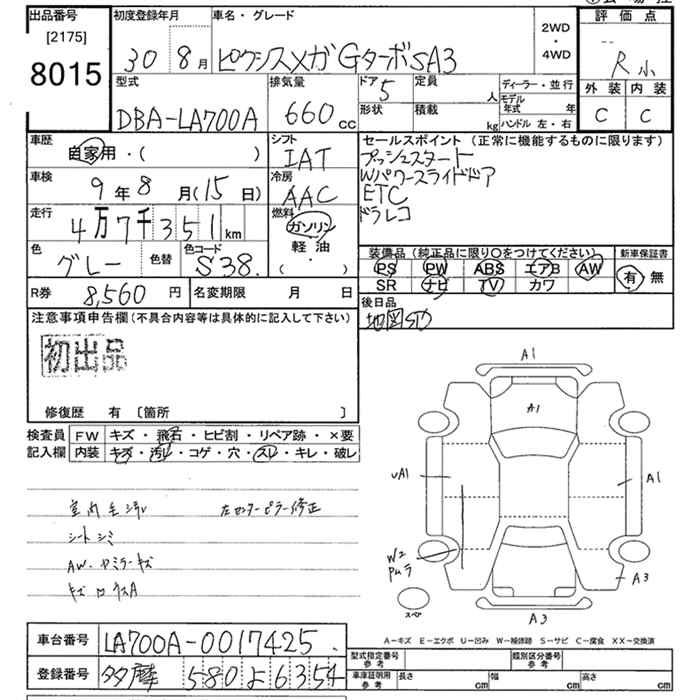 出品番号
[2175]
8015
初度登録年月
30年 8月
車名・グレード
ピクシスメガ Gターボ SA3
2WD
・
4WD
評価点
R 小
外装 内装
C C
型式
DBA-LA700A
排気量
660 cc
ドア 5
定員 人
形状
積載 kg
ディーラー・並行
モデル年式 年
ハンドル 左・右
車歴
自家用・( )
シフト
IAT
セールスポイント (正常に機能するものに限ります)
プッシュスタート
Wパワースライドドア
ETC
ドラレコ
車検
9年 8月 (15日)
冷房
AAC
走行
4万7千351km
燃料
ガソリン
軽油
・
( )
色
グレー
色替
色コード
S38.
装備品 (純正品に限り○をつけてください)
PS PW ABS エアB AW
SR ナビ TV カワ
新車保証書
有 無
R券 8,560円
名変期限 月 日
後日品
地図SD
注意事項申告欄(不具合内容等は具体的に記入して下さい)
初出品
修復歴 有 〔箇所 〕
検査員記入欄
FW キズ・飛石・ヒビ割・リペア跡・×要
内装 キズ・汚レ・コゲ・穴・スレ・キレ・破レ
左センターピラー修正
シートシミ
A1
A1
UA1
A1
W2
A3
スペア
A3
A-キズ E-エクボ U-凹み W-補修跡 S-サビ C-腐食 XX-交換済
車台番号
LA700A-0017425
登録番号
多摩 580 よ 6354
型式指定番号 参考
類別区分番号 参考
車庫証明用 参考
長さ cm
幅 cm
高さ cm